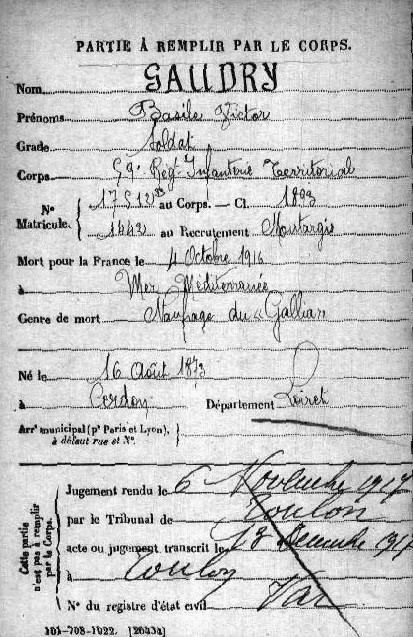 PARTIE À REMPLIR PAR LE CORPS.
Nom GAUDRY
Prénoms Basile Victor
Grade Soldat
Corps 59e Régt Infanterie Territorial
No Matricule. au Corps. — Cl. 1893
1442 au Recrutement Montargis
Mort pour la France le 4 Octobre 1916
à Mer Méditerranée
Genre de mort Naufrage du « Gallia »
Né le 16 Août 1873
à Cerdon Département Loiret
Arrt municipal (pr Paris et Lyon),
à défaut rue et No.
Cette partie n'est pas à remplir par le Corps.
Jugement rendu le 6 Novembre 1917
par le Tribunal de Toulon
acte ou jugement transcrit le 18 Décembre 1917
à Toulon
No du registre d'état civil Var
101-708-1922. [26434]